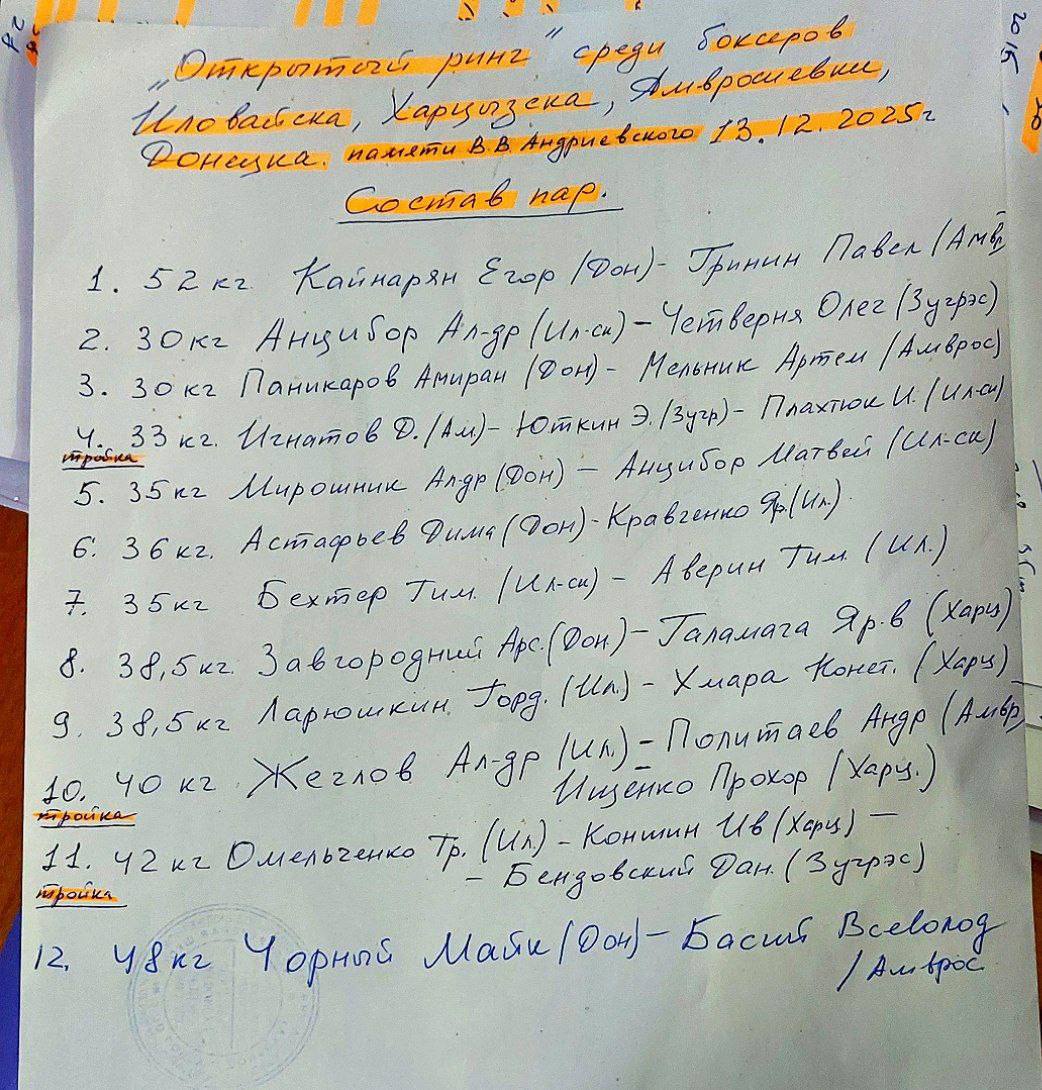 „Открытый ринг" среди боксеров
Иловайска, Харцызска, Амвросиевки,
Донецка. памяти В.В. Андриевского 13.12.2025г
Состав пар.
1. 52 кг Кайнарян Егор (Дон) - Гринин Павел (Амвр
2. 30 кг Анцибор Ал-др (Ил-ск) - Четверня Олег (Зугрэс)
3. 30 кг Паникаров Амиран (Дон) - Мельник Артем (Амврос)
4. 33 кг. Игнатов Д. (Ам) - Юткин Э. (Зугр) - Плахтюк И. (Ил-ск)
тройка
5. 35 кг Мирошник Ал-др (Дон) - Анцибор Матвей (Ил-ск)
6. 36 кг. Астафьев Дима (Дон) - Кравченко Яр. (Ил.)
7. 35 кг Бехтер Тим. (Ил-ск) - Аверин Тим. (Ил.)
8. 38,5 кг. Завгородний Арс. (Дон) - Галамага Яр-в (Харц)
9. 38,5 кг Ларюшкин Горд. (Ил.) - Хмара Конст. (Харц)
10. 40 кг Жеглов Ал-др (Ил.) - Политаев Андр (Амвр
тройка
Ищенко Прохор (Харц.)
11. 42 кг Омельченко Тр. (Ил) - Коншин Ив (Харц) -
тройка
- Бендовский Дан. (Зугрэс)
12. 48 кг Чорный Майк (Дон) - Басий Всеволод
(Амврос
2015